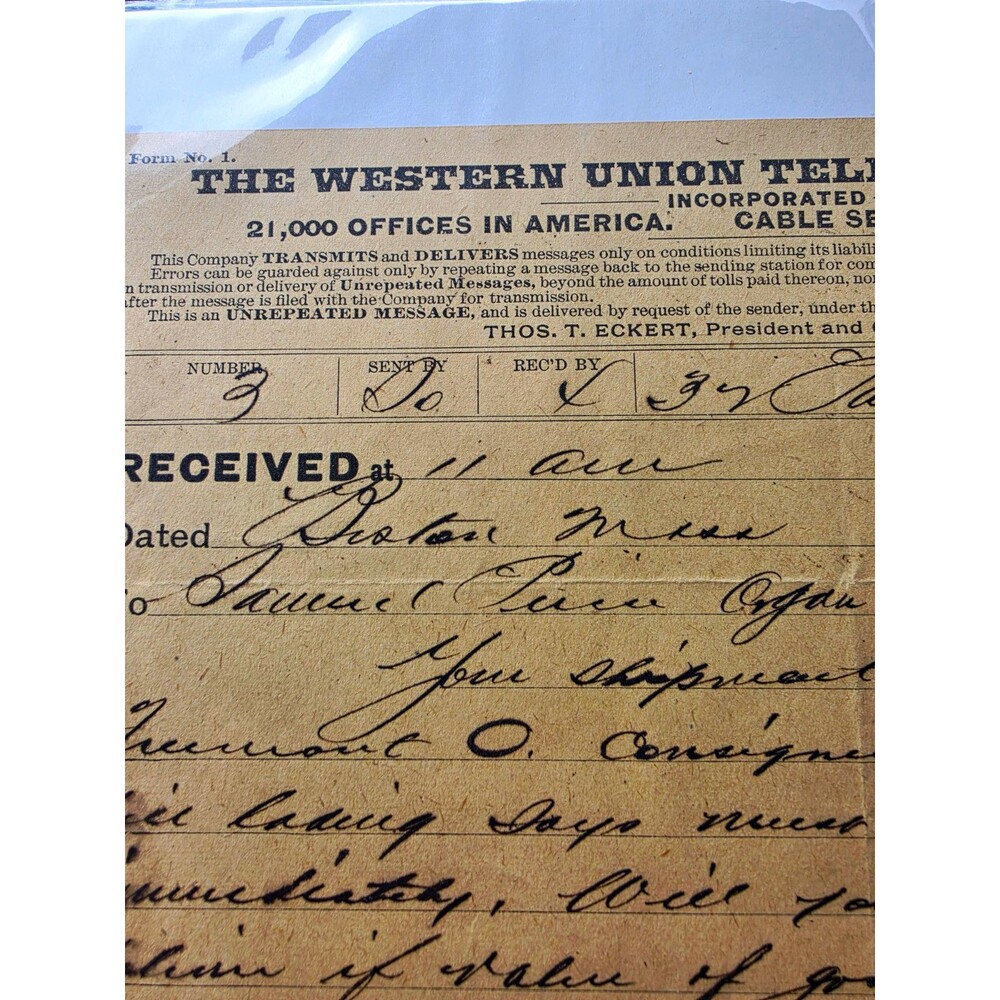 Form No. 1.
THE WESTERN UNION TEL
INCORPORATED
21,000 OFFICES IN AMERICA. CABLE SE
This Company TRANSMITS and DELIVERS messages only on conditions limiting its liabili
Errors can be guarded against only by repeating a message back to the sending station for com
n transmission or delivery of Unrepeated Messages, beyond the amount of tolls paid thereon, no
after the message is filed with the Company for transmission.
This is an UNREPEATED MESSAGE, and is delivered by request of the sender, under th
THOS. T. ECKERT, President and
NUMBER SENT BY REC'D BY
3 Do X 32
RECEIVED at 11 am
Dated Boston Mass
To Samuel Organ
Your shipment
Fremont O. Consigne
ill lading says must
immediately, Will
if value of goo